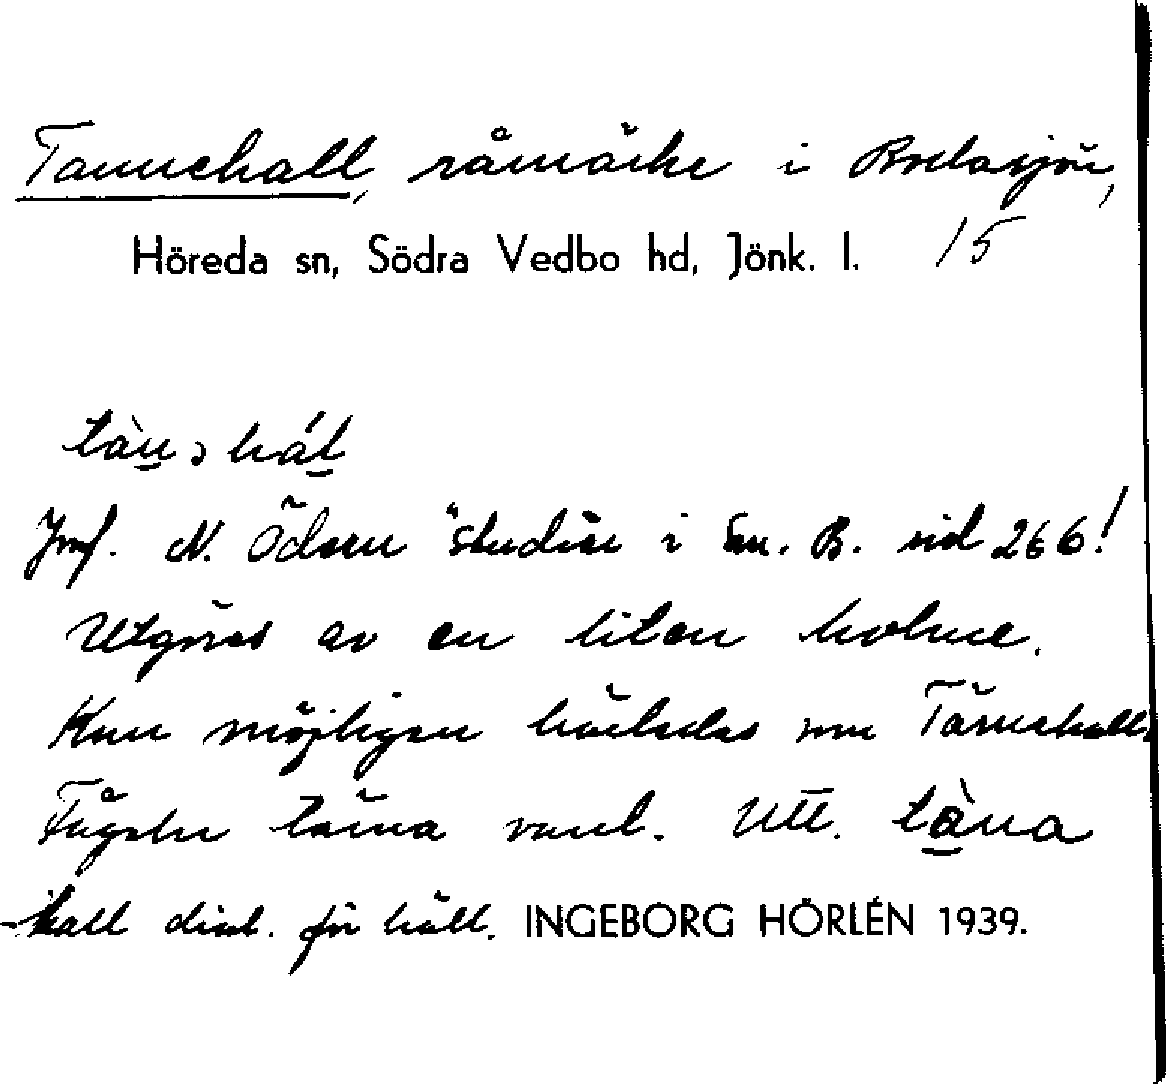 Tannehall, råmärke i Bredasjön,
Höreda sn, Södra Vedbo hd, Jönk. l. 15
tàn, hál
Jmf. N. Ödeen "studier i Sm. B. sid 266!
Utgöres av en liten holme.
Kan möjligen härledas som Tärnehall.
Fågeln tärna vanl. Utt. tàna
-hall dial. för häll. INGEBORG HÖRLÉN 1939.